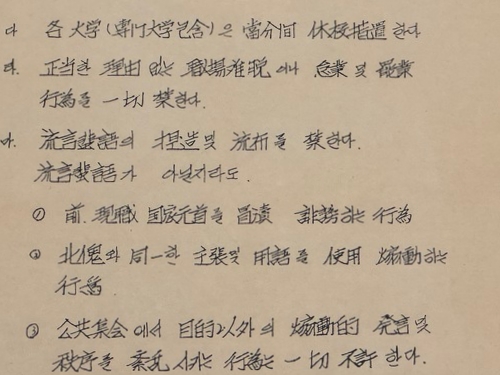 다 各 大学(専门大学包含)은 當分间 休校措置 한다
라. 正当한 理由 없는 職場離脱 이나 怠業 및 罷業
行為를 一切 禁한다.
마. 流言蜚語의 捏造 및 流布를 禁한다.
流言蜚語가 아닐지라도.
① 前.現職 国家元首를 冒瀆 誹謗하는 行為
② 北傀와 同一한 主張 및 用語를 使用 煽動하는
行為.
③ 公共集会에서 目的以外의 煽動的 発言 및
秩序를 紊乱시키는 行為는 一切 不許한다.